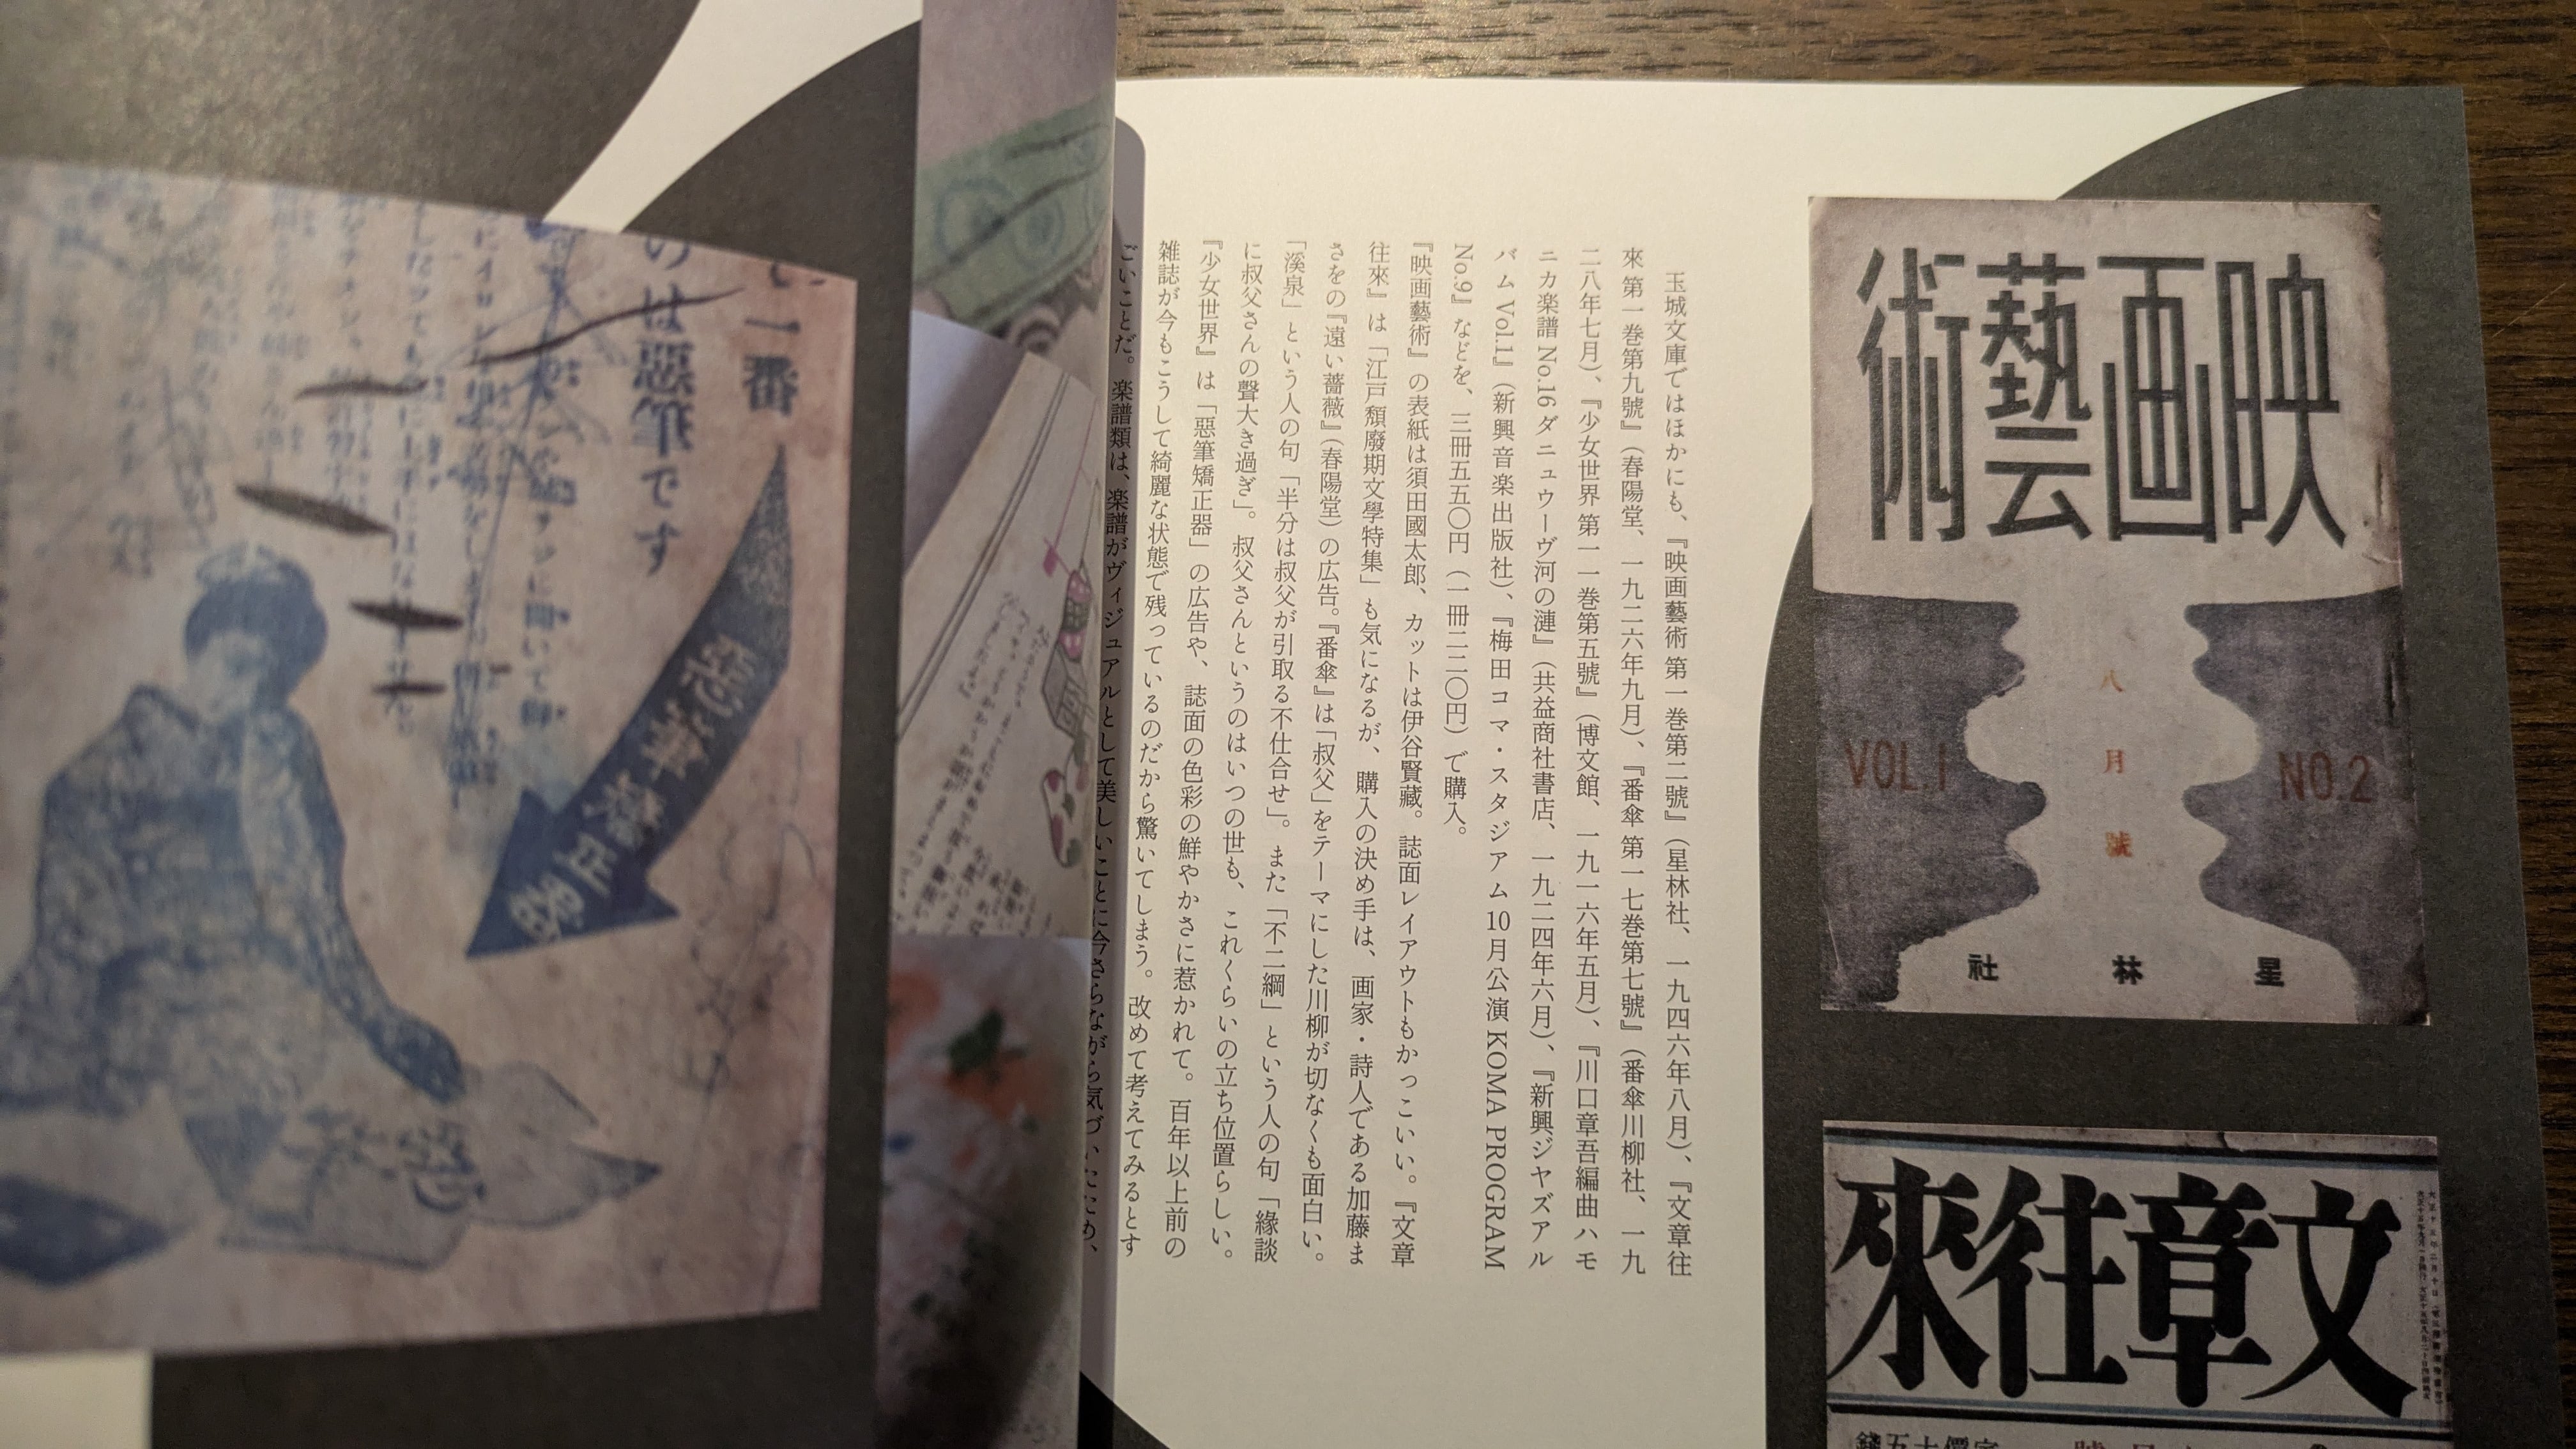 映画藝術
VOL.1
八月號
NO.2
星林社
文章往來
玉城文庫ではほかにも、『映画藝術 第一巻第二號』（星林社、一九四六年八月）、『文章往
來 第一巻第九號』（春陽堂、一九二六年九月）、『番傘 第一七巻第七號』（番傘川柳社、一九
二八年七月）、『少女世界 第一一巻第五號』（博文館、一九一六年五月）、『川口章吾編曲ハモ
ニカ楽譜 No.16 ダニュウーヴ河の漣』（共益商社書店、一九二四年六月）、『新興ジャズアル
バム Vol.1』（新興音楽出版社）、『梅田コマ・スタジアム 10月公演 KOMA PROGRAM
No.9』などを、三冊五五〇円（一冊二二〇円）で購入。
『映画藝術』の表紙は須田國太郎、カットは伊谷賢藏。誌面レイアウトもかっこいい。『文章
往來』は「江戸頽廢期文學特集」も気になるが、購入の決め手は、画家・詩人である加藤ま
さをの『遠い薔薇』（春陽堂）の広告。『番傘』は「叔父」をテーマにした川柳が切なくも面白い。
「溪泉」という人の句「半分は叔父が引取る不仕合せ」。また「不二綱」という人の句「緣談
に叔父さんの聲大き過ぎ」。叔父さんというのはいつの世も、これくらいの立ち位置らしい。
『少女世界』は「惡筆矯正器」の広告や、誌面の色彩の鮮やかさに惹かれて。百年以上前の
雑誌が今もこうして綺麗な状態で残っているのだから驚いてしまう。改めて考えてみるとす
ごいことだ。楽譜類は、楽譜がヴィジュアルとして美しいことに今さらながら気づいたため、
一番
のは惡筆です
惡筆矯正器